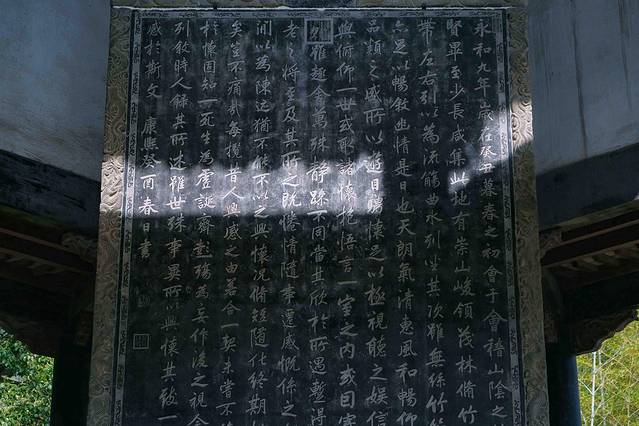 永和九年歲在癸丑暮春之初會于會稽山陰之
賢畢至少長咸集此地有崇山峻領茂林脩竹
帶左右引以為流觴曲水列坐其次雖無絲竹
亦足以暢敘幽情是日也天朗氣清惠風和暢仰
品類之盛所以遊目騁懷足以極視聽之娛信
與俯仰一世或取諸懷抱悟言一室之内或因寄
雖趣舍萬殊靜躁不同當其欣於所遇暫得
老之將至及其所之既惓情隨事遷感慨係之
間以為陳迹猶不能不以之興懷況脩短隨化終期
矣豈不痛哉每攬昔人興感之由若合一契未嘗不
於懷固知一死生為虛誕齊彭殤為妄作後之視今
列敘時人錄其所述雖世殊事異所以興懷其致一
感於斯文 康熙癸酉春日書